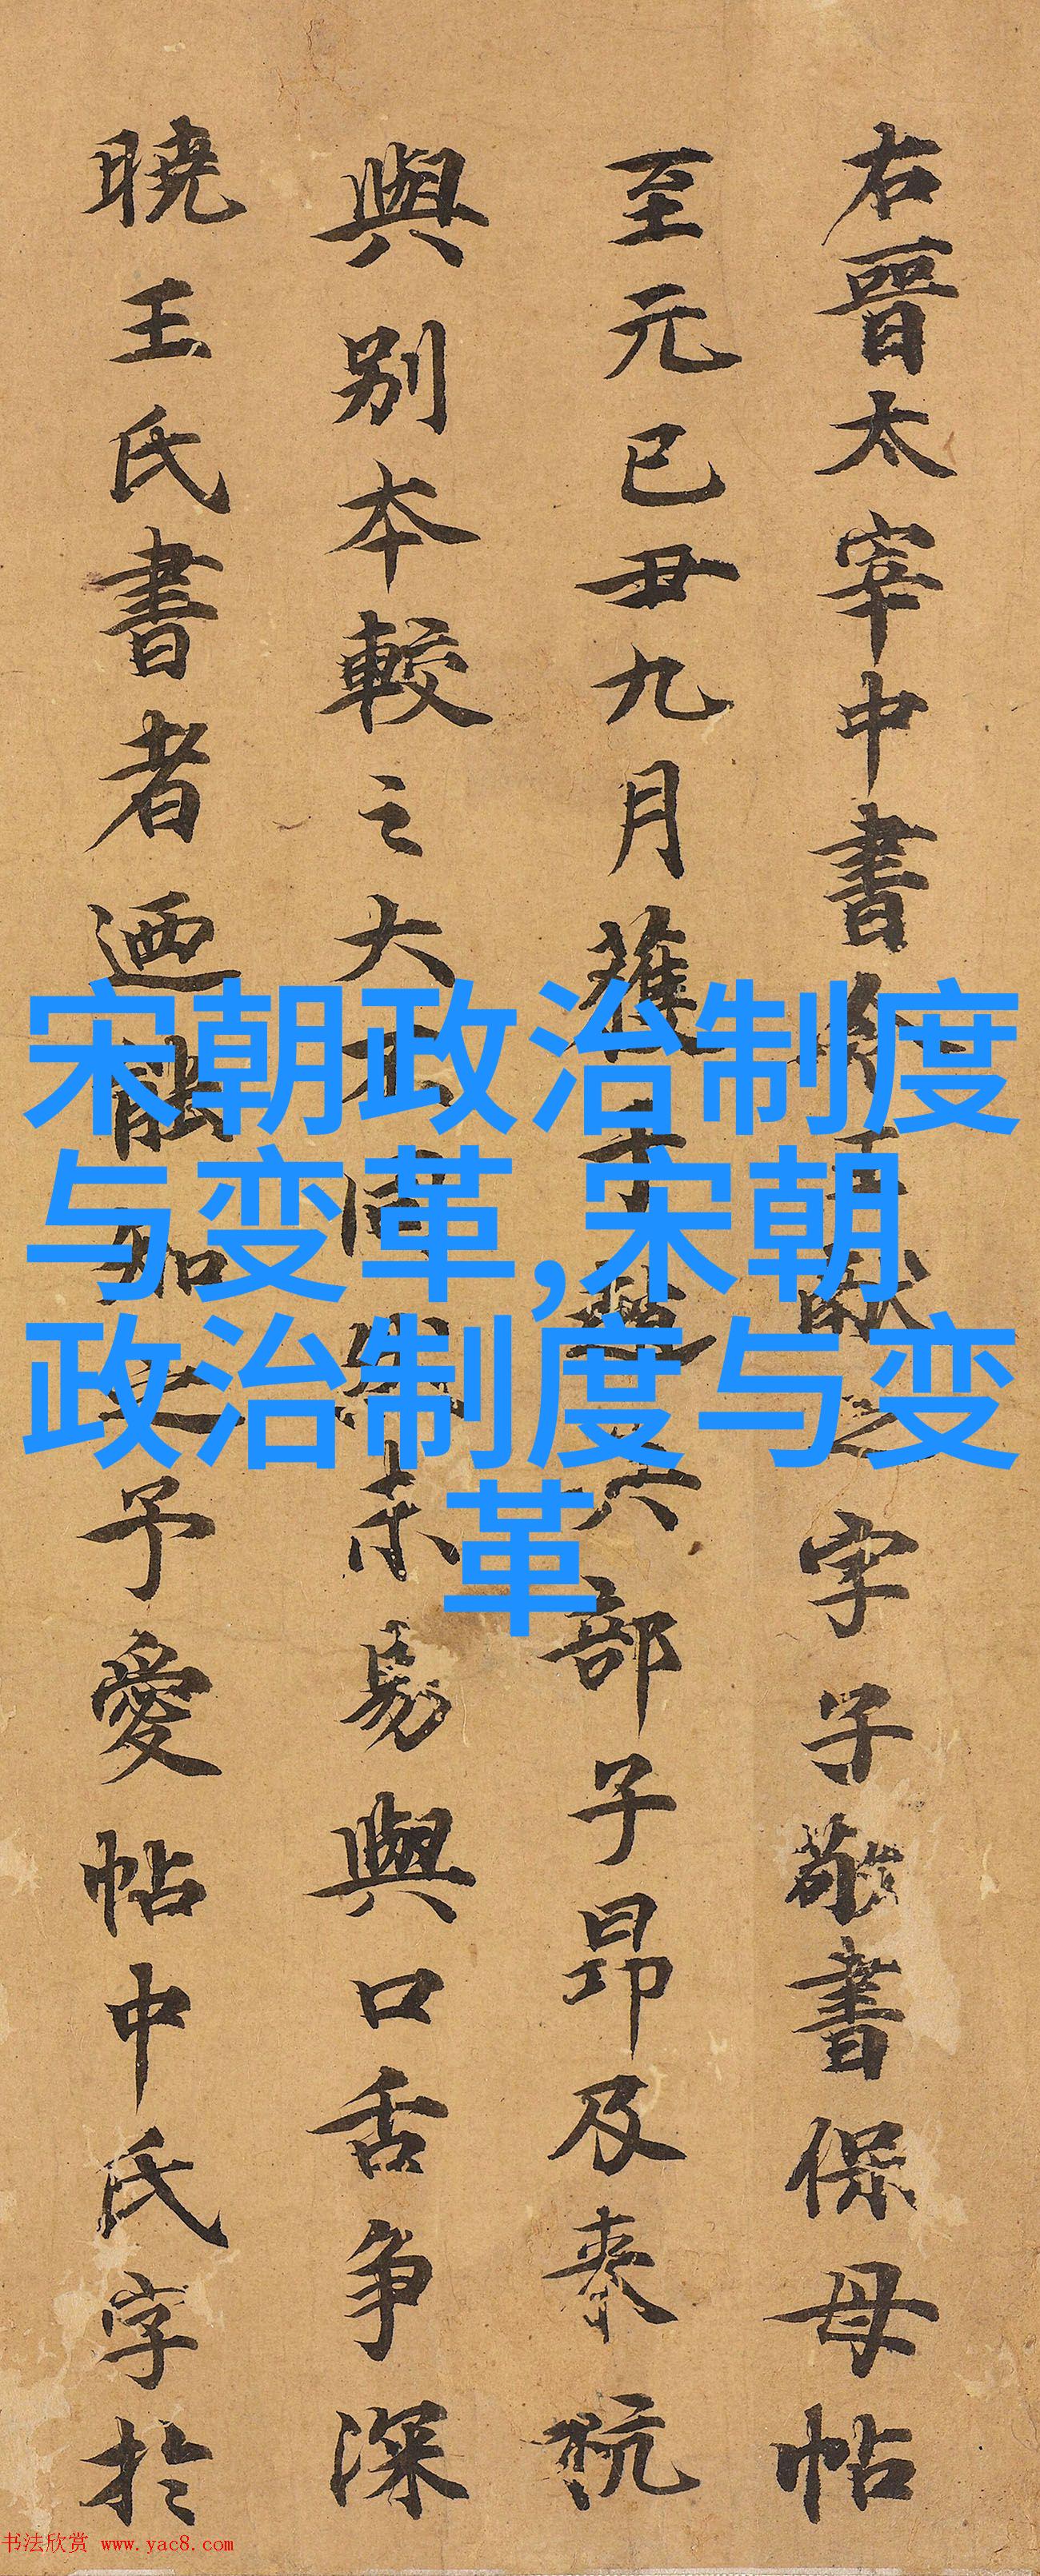 右晉太宰中書令王獻之字子敬書保母帖
至元已丑九月獲于 六部子昂及 杭
與別本較之大不同 未易與口舌争深
曉王氏書者迺能知之予愛帖中氏字於
宋朝政治制度
与变革,宋朝
政治制度与变
革
书法欣赏 www.yac8.com